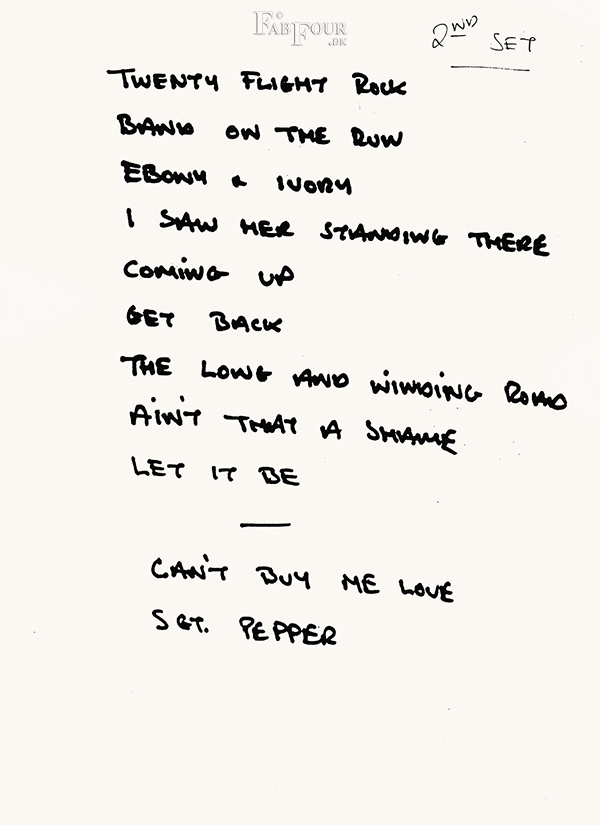 © FAB FOUR .DK
2ND SET
TWENTY FLIGHT ROCK
BAND ON THE RUN
EBONY & IVORY
I SAW HER STANDING THERE
COMING UP
GET BACK
THE LONG AND WINDING ROAD
AIN'T THAT A SHAME
LET IT BE
CAN'T BUY ME LOVE
SGT. PEPPER